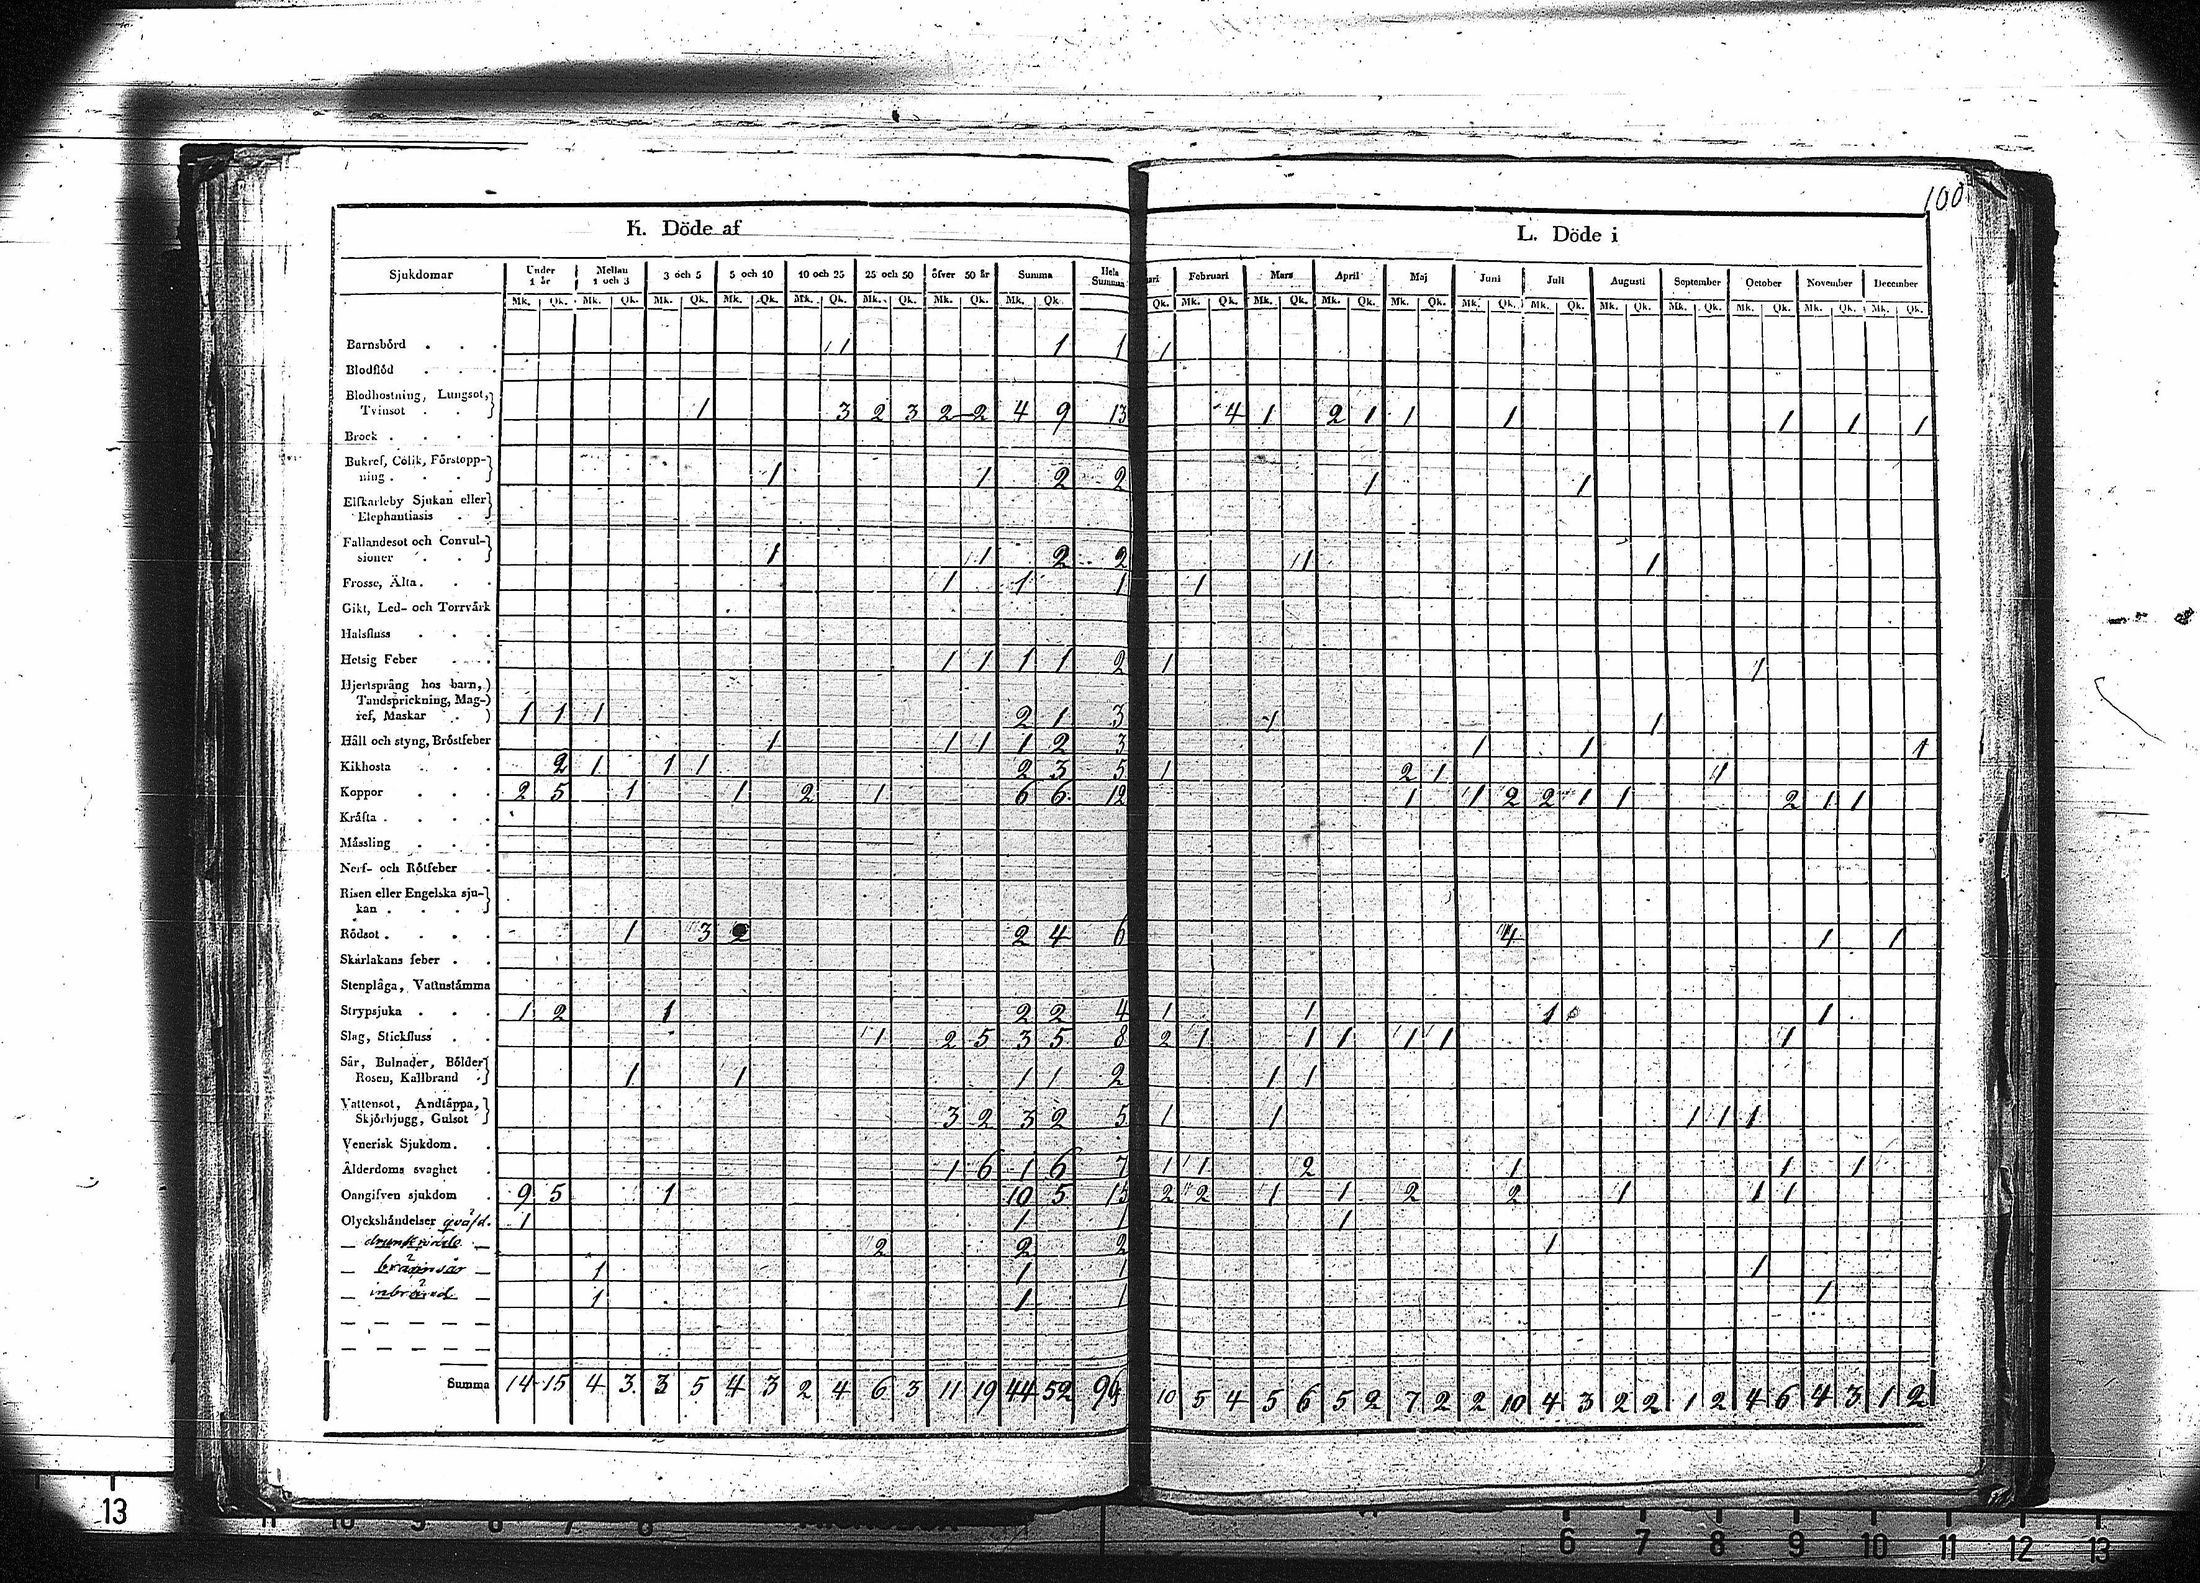 100
K. Döde af
L. Döde i
Sjukdomar Under 1 år Mellan 1 och 3 3 och 5 5 och 10 10 och 25 25 och 50 öfver 50 år Summa Hela Summa
Februari Mars April Maj Juni Juli Augusti September October November December
Mk. Qk. Mk. Qk. Mk. Qk. Mk. Qk. Mk. Qk. Mk. Qk. Mk. Qk. Mk. Qk.
Qk. Mk. Qk. Mk. Qk. Mk. Qk. Mk. Qk. Mk. Qk. Mk. Qk. Mk. Qk. Mk. Qk. Mk. Qk. Mk. Qk. Mk. Qk.
Barnsbörd . . . 1 1 1 1
Blodflöd . . .
Blodhostning, Lungsot,
Tvinsot . . 1 3 2 3 2 2 4 9 13 4 1 2 1 1 1 1 1 1
Brock . . . .
Bukref, Colik, Förstopp-
ning . . . 1 1 2 2 1 1
Elfkarleby Sjukan eller
Elephantiasis .
Fallandesot och Convul-
sioner . . 1 1 2 2 1 1
Frosse, Älta . . . 1 1 1 1
Gikt, Led- och Torrvärk
Halsfluss . . .
Hetsig Feber . . 1 1 1 1 2 1 1
Hjertsprång hos barn,
Tandsprickning, Mag-
ref, Maskar . 1 1 1 2 1 3 1 1
Håll och styng, Bröstfeber 1 1 1 1 2 3 1 1 1
Kikhosta . . . 2 1 1 1 2 3 5 1 2 1 1
Koppor . . . 2 5 1 1 2 1 6 6 12 1 1 2 2 1 1 2 1 1
Kräfta . . . .
Mässling . . .
Nerf- och Rötfeber .
Risen eller Engelska sju-
kan . . . .
Rödsot . . . . 1 3 2 2 4 6 4 1 1
Skarlakans feber . .
Stenplåga, Vattustämma
Strypsjuka . . . 1 2 1 2 2 4 1 1 1 1
Slag, Stickfluss . . 1 2 5 3 5 8 2 1 1 1 1 1 1
Sår, Bulnader, Bölder
Rosen, Kallbrand . 1 1 1 1 2 1 1
Vattensot, Andtäppa,
Skjörbjugg, Gulsot 3 2 3 2 5 1 1 1 1 1
Venerisk Sjukdom . .
Ålderdoms svaghet . 1 6 1 6 7 1 1 2 1 1 1
Oangifven sjukdom . 9 5 1 10 5 15 2 2 1 1 2 2 1 1 1
Olyckshändelser qväfd. 1 1 1 1
— drunknade — 2 2 2 1
— brännsår — 1 1 1 1
— — 1 1 1 1
— — — — —
— — — — —
Summa 14 15 4 3 3 5 4 3 2 4 6 3 11 19 44 52 96 10 5 4 5 6 5 2 7 2 2 10 4 3 2 2 1 2 4 6 4 3 1 2
13 6 7 8 9 10 11 12 13